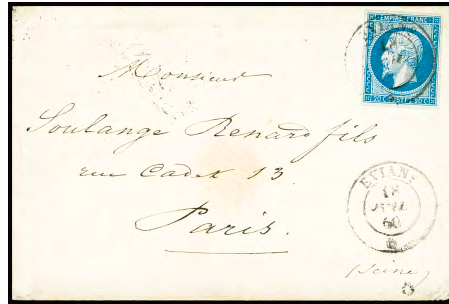 EMPIRE FRANC
Monsieur
Soulange Renard fils
rue Cadet 13
Paris.
EVIAN
18
JUIL
60
(Seine)